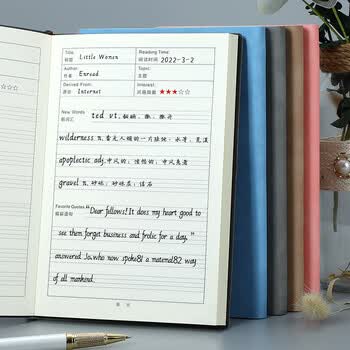 Title: Little Women
标题
Reading Time: 2022-3-2
阅读时间
Author: Enread
作者
Topic:
主题
Derived From: Internet
源自
Interest: ★★★☆☆
兴趣指数
New Words ted vt. 翻晒，撒，摊开
新词汇
wilderness n. 杳无人烟的一片陆地、水等，荒漠
apoplectic adj. 中风的；愤怒的，中风患者
gravel n. 砂砾；砂砾层；结石
Favorite Quotes "Dear fellows! It does my heart good to
精彩语句
see them forget business and frolic for a day,"
answered Jo, who now spoke81 a maternal82 way
of all mankind.